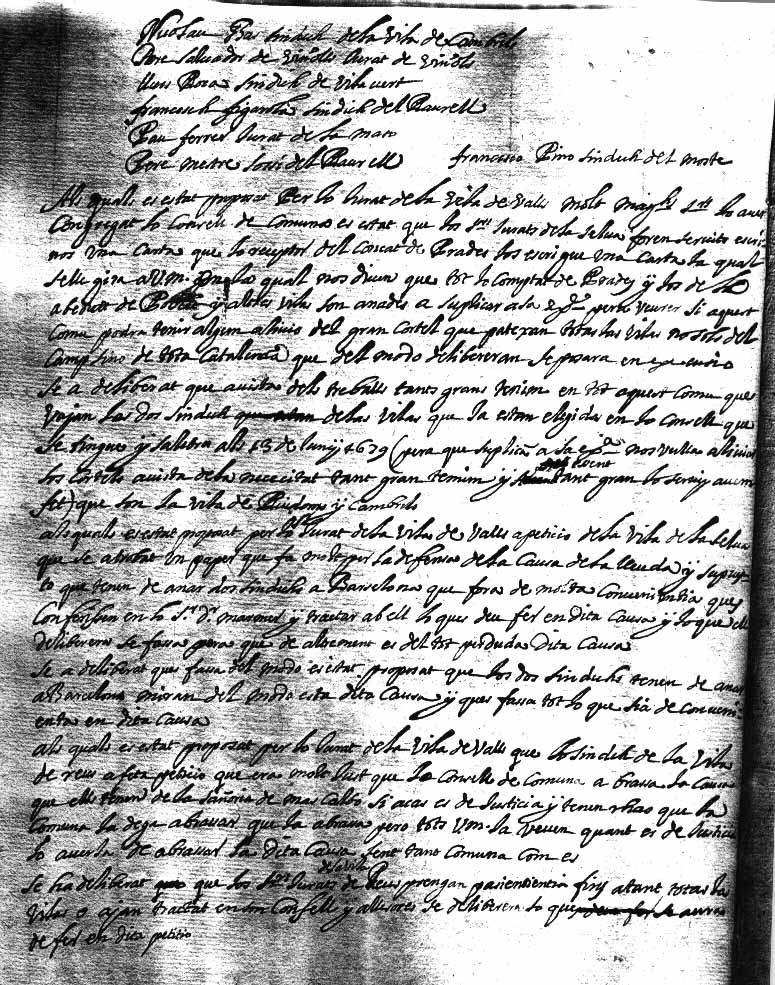 Nicolau Bas sindich de la Vila de Cambrils
Pere Salvador de Viñols Jurat de Viñols
Lluis Roza sindich de Vilavert
francesch figarola sindich del Raurell
Pau ferrer Jurat de la mato
Pere mestre sosi del Raurell francisco Pino sindich del morte
Als quals es estat proposat Per lo Jurat de la Vila de Valls molt lo aver
Congregat lo Concell de Comuna es estat que los Srs Jurats de la Selva foren servits escriu
nos Una Carta que lo receptor del Concat de Prades los escrigue Una Carta la qual
selle gira a V.m. la qual nos diuen que tot lo Comptat de Prades y los de
abediat de y altres Vilas son anades a suplicar a sa Exa pera veurer si aquest
Comu podra tenir algun alivio del gran Cortell que patexen totas las Vilas no sols del
Camp sino de tota Catalunia que del modo delibereran se posara en
Se a deliberat que avista dels treballs tants grans tenim en tot aquest Comu ques
Vajan los dos sindich de las Vilas que ja estan elegidas en lo Consell que
se tingue y selebra als 13 de Juny 1639 (pera que suplica a sa Exa nos vullas aliviar
los Cortells avista de la necesitat tant gran tenim y tant gran lo servey avem
fet) que son la vila de Riudoms y Cambrils
als quals es estat proposat per lo Jurat de la Vila de Valls a peticio de la Vila de la Selva
que se a trobat un paper que fa molt per la defensa de la Causa de la lleuda y supost
to que tenen de anar dos sindichs a Barcelona que fora de molta Convenientia ques
Conferissen en lo Sr Dr y tractar abell lo ques deu fer en dita Causa y lo que ell
deliberera se fassa pera que de altrement es del tot perduda dita Causa
Se a deliberat ques fassa del modo es estat proposat que los dos sindichs tenen de anar
a Barcelona miran del modo esta dita Causa y ques fassa tot lo que sia de conveni
entia en dita Causa
als quals es estat proposat per lo Jurat de la Vila de Valls que lo sindich de la Vila
de reus a feta peticio que era molt Just que lo Consell de Comuna abrassa la Causa
que ells tenen de la señoria de mas Calbo si acas es de Justicia y tenen rhao que la
Comuna la dega abrassar que la abrasa pero tots V.m. la veuen quant es de Justicia
lo averla de abrassar la dita Causa sent tant Comuna com es
de la Vila
Se ha deliberat que los Srs Jurats de Reus prengan pasiensientia fins atant totas las
Vilas o ajan tractat en son Consell y alleores se deliberera lo que
de fer en dita petitio